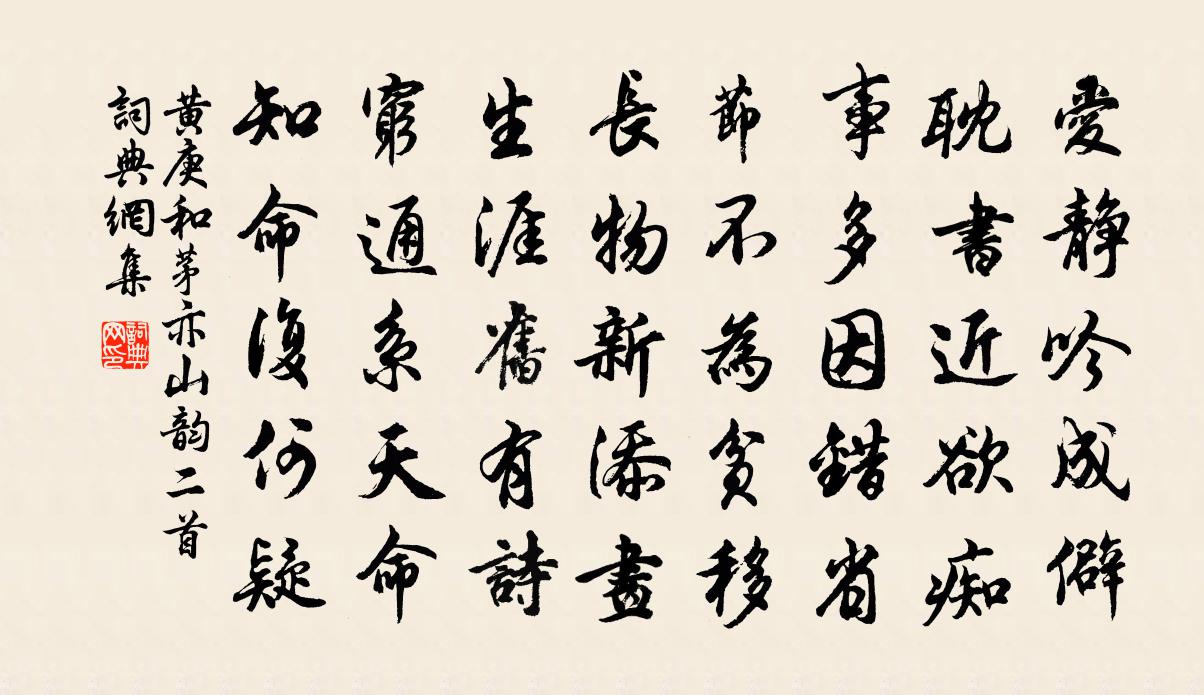 愛静吟成僻
耽書近欲痴
事多因錯省
節不為貧移
長物新添畫
生涯舊有詩
窮通系天命
知命復何疑
黄庚和茅亦山韵二首
詞典網集
詞典
网印